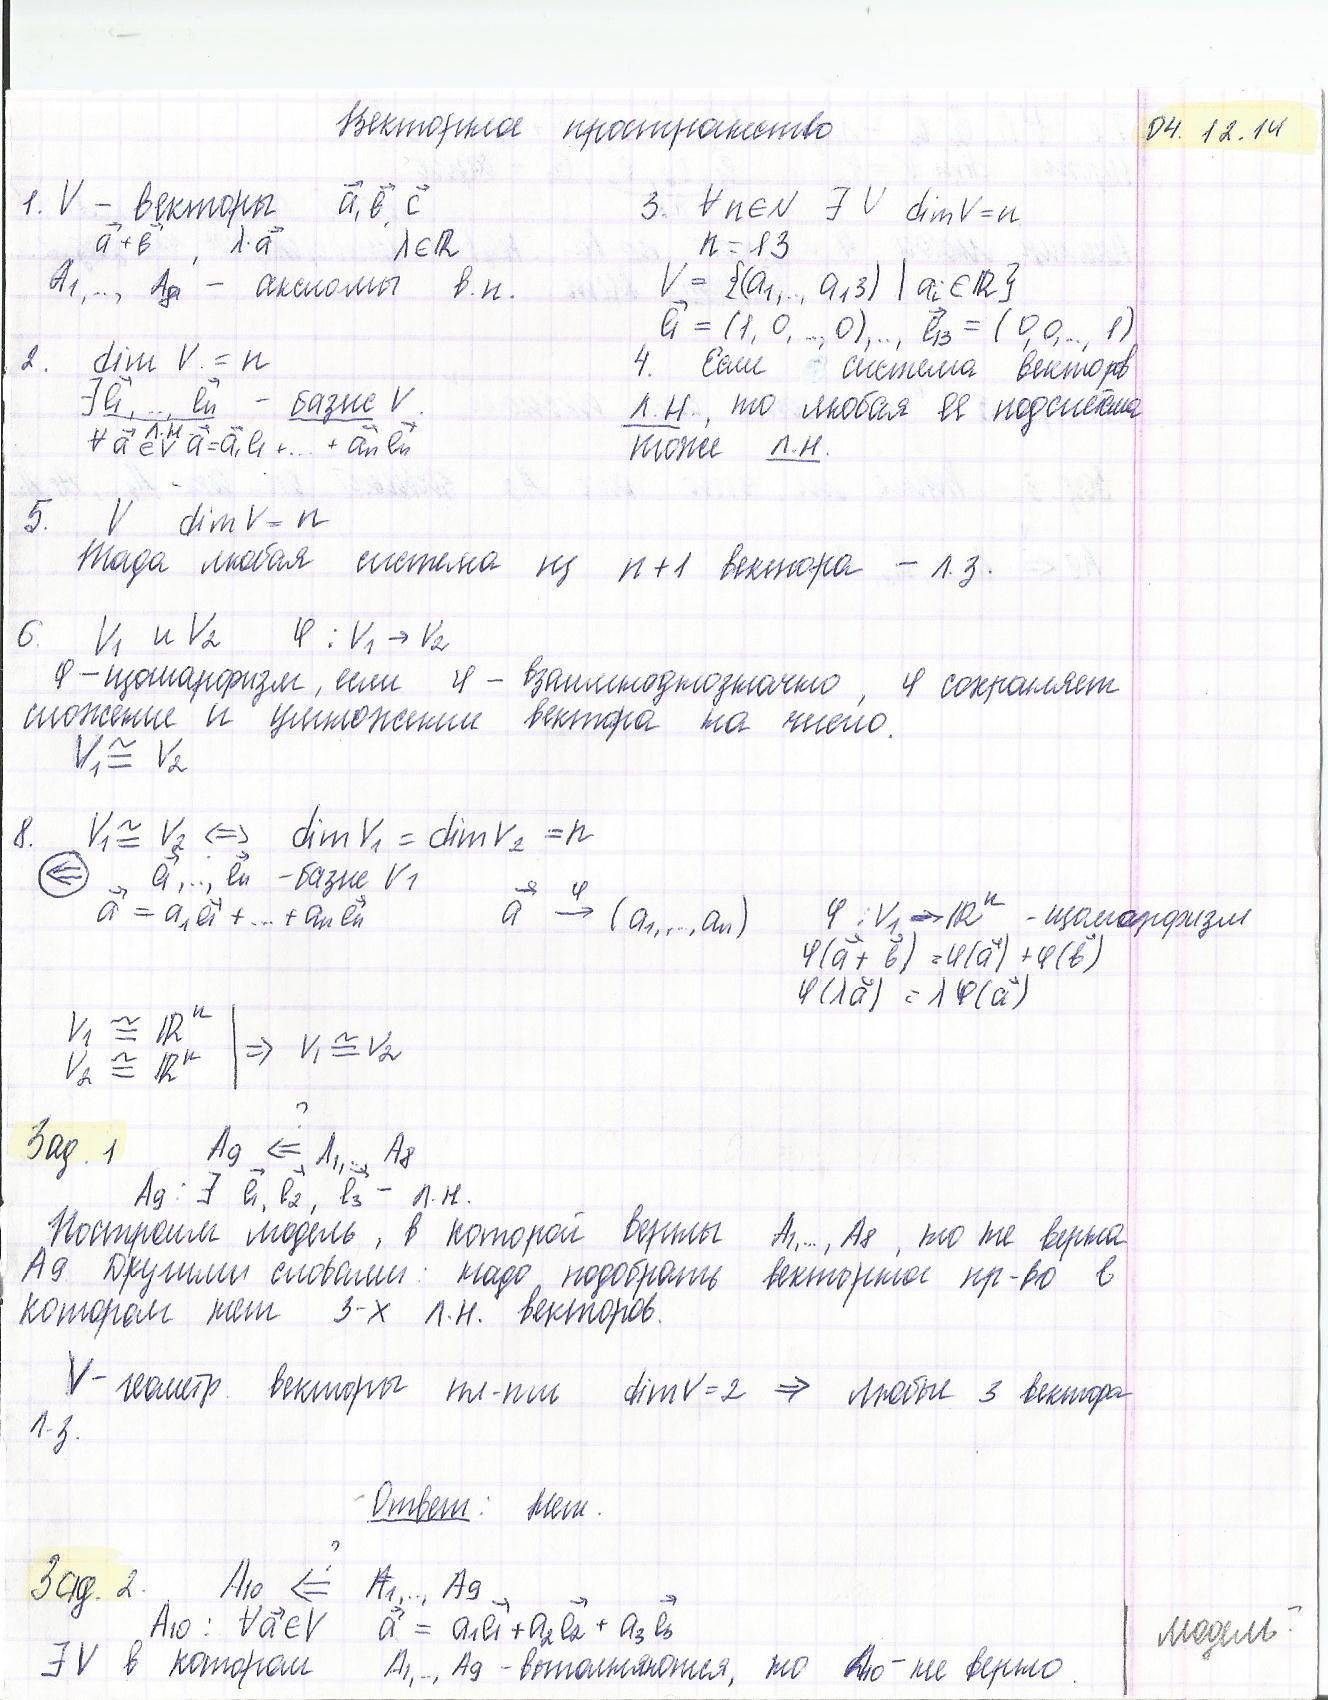 Векторное пространство
04.12.14
1. V – векторы a⃗, b⃗, c⃗
a⃗+b⃗, λ·a⃗ λ∈ℝ
A₁,..., A₈ – аксиомы в.п.
2. dim V = n
∃ e⃗₁,..., e⃗ₙ – базис V.
л.н
∀ a⃗ ∈ V a⃗ = a⃗₁e₁ + ... + a⃗ₙe⃗ₙ
3. ∀n∈N ∃ V dimV=n
n=13
V = {(a₁,.., a₁₃) | aᵢ∈ℝ}
e⃗₁ = (1,0,..,0),.., e⃗₁₃ = (0,0,..,1)
4. Если система векторв
л.н., то любая её подсистема
тоже л.н.
5. V dimV=n
Тогда любая система из n+1 вектора – л.з.
6. V₁ и V₂ φ: V₁→V₂
φ – изоморфизм, если φ – взаимнооднозначно, φ сохраняет
сложение и умножение вектора на число.
V₁ ≅ V₂
8. V₁ ≅ V₂ <=> dimV₁ = dimV₂ = n
⇐ e⃗₁,.., e⃗ₙ – базис V₁
a⃗ = a₁e⃗₁ + ... + aₙe⃗ₙ a⃗ →^φ (a₁,..., aₙ) φ: V₁→ℝⁿ – изоморфизм
φ(a⃗+b⃗) = φ(a⃗)+φ(b⃗)
φ(λa⃗) = λφ(a⃗)
V₁ ≅ ℝⁿ
V₂ ≅ ℝⁿ | => V₁ ≅ V₂
Зад. 1 A₉ ⇐? A₁,.., A₈
A₉: ∃ e⃗₁, e⃗₂, e⃗₃ – л.н.
Построим модель, в которой верны A₁,.., A₈, но не верна
A₉ Другими словами: надо подобрать векторное пр-во в
котором нет 3-х л.н. векторов.
V – геометр. векторы пл-ти dimV=2 ⇒ любые 3 вектора
л.з.
Ответ: Нет.
Зад. 2. A₁₀ ⇐? A₁,.., A₉
A₁₀: ∀a⃗∈V a⃗ = a₁e⃗₁+a₂e⃗₂+a₃e⃗₃
∃V в котором A₁,.., A₉ – выполняются, но A₁₀ – не верно.
модель?